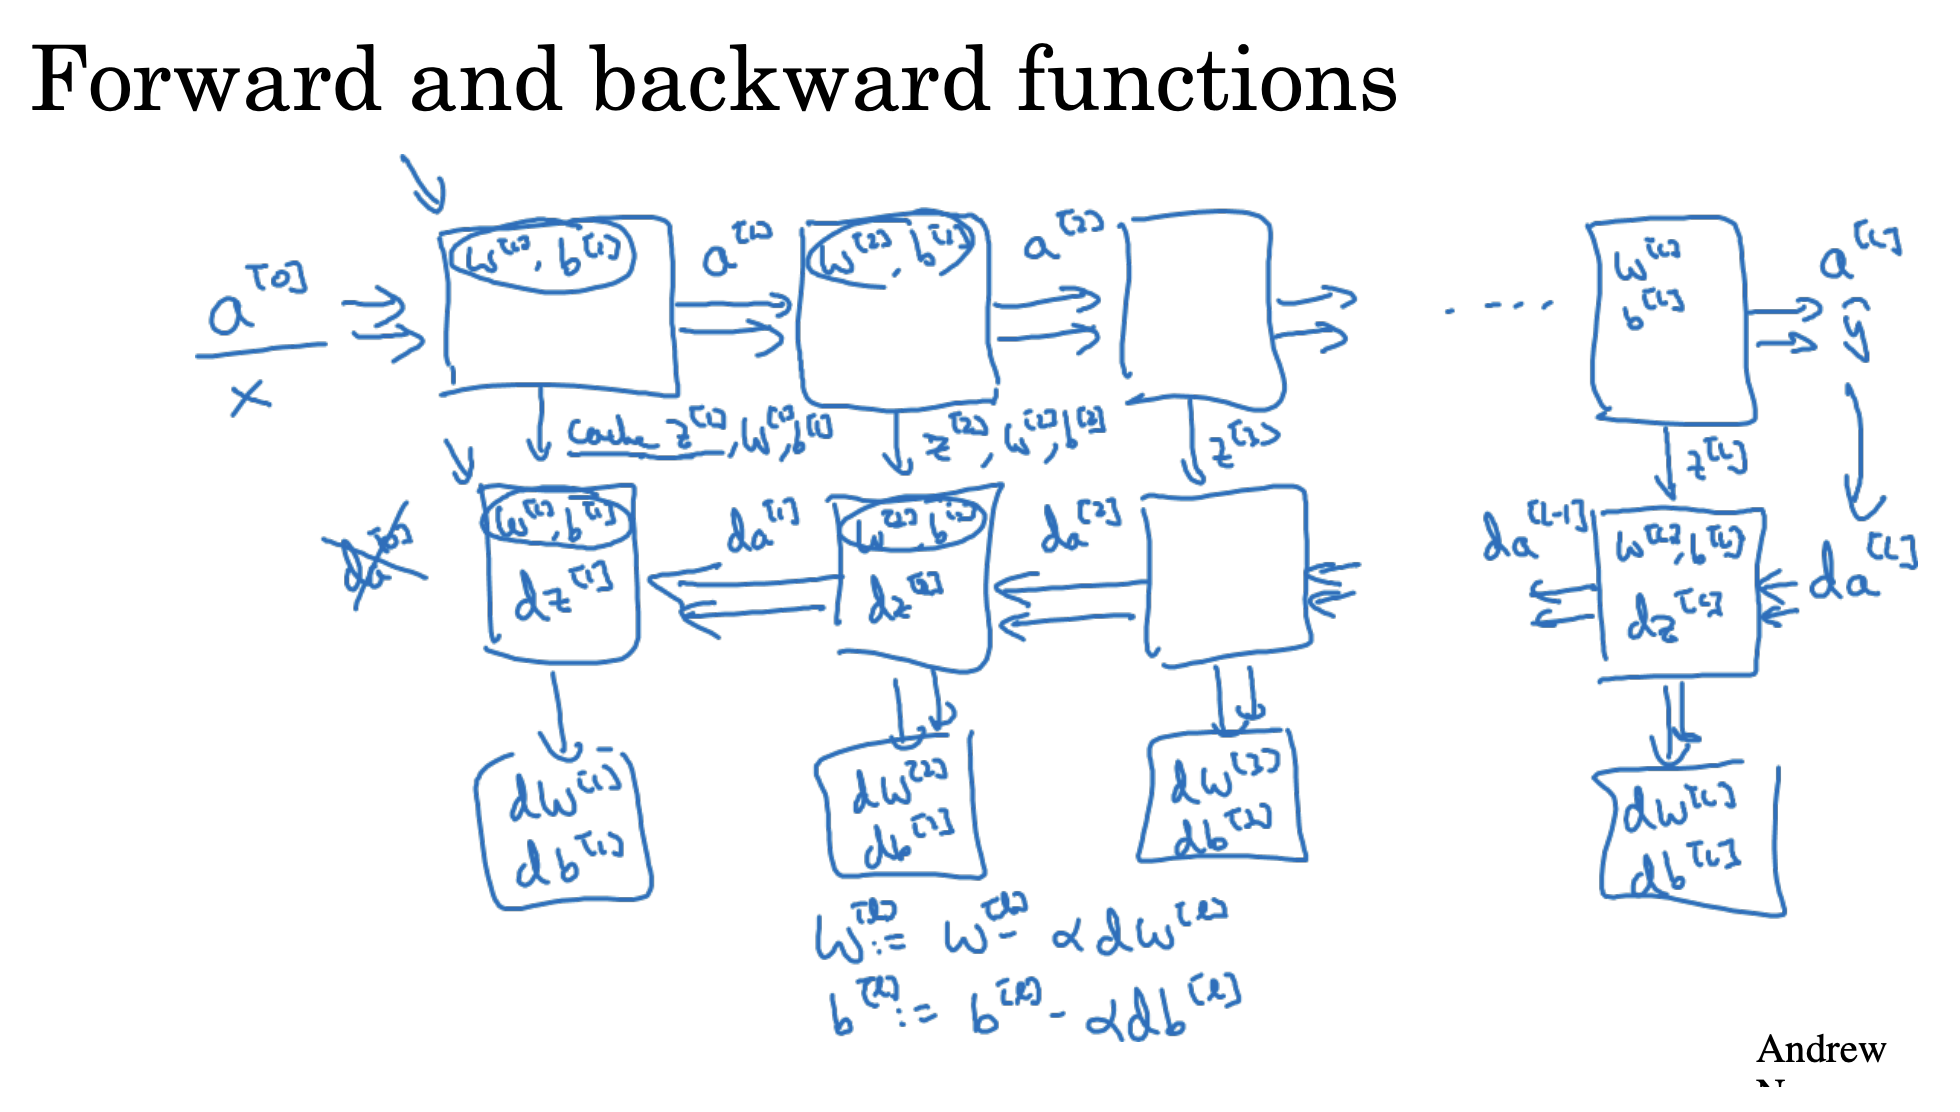 Forward and backward functions
a^[0]
x
w^[1], b^[1]
a^[1]
w^[2], b^[1]
a^[2]
....
w^[L]
b^[L]
a^[L]
ŷ
cache z^[1], w^[1], b^[1]
z^[2], w^[2], b^[2]
z^[3]
z^[L]
da^[0]
w^[1], b^[1]
dz^[1]
da^[1]
w^[2], b^[2]
dz^[2]
da^[2]
da^[L-1]
w^[L], b^[L]
dz^[L]
da^[L]
dw^[1]
db^[1]
dw^[2]
db^[2]
dw^[3]
db^[3]
dw^[L]
db^[L]
w^[l] := w^[l] - αdw^[l]
b^[l] := b^[l] - αdb^[l]
Andrew